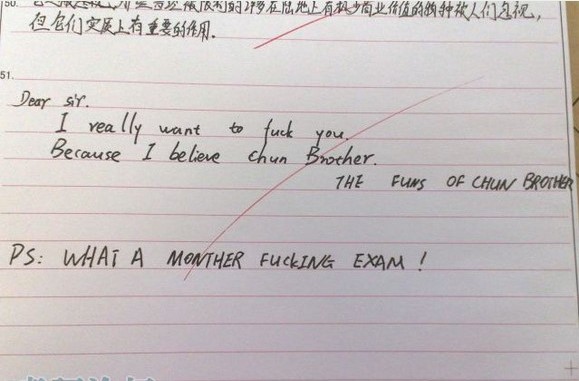 50.
有 商业价值的物种被人们忽视,
但它们实质上有重要的作用.
51.
Dear sir.
I really want to fuck you.
Because I believe chun Brother.
THE FUNS OF CHUN BROTHER
PS: WHAT A MONTHER FUCKING EXAM !